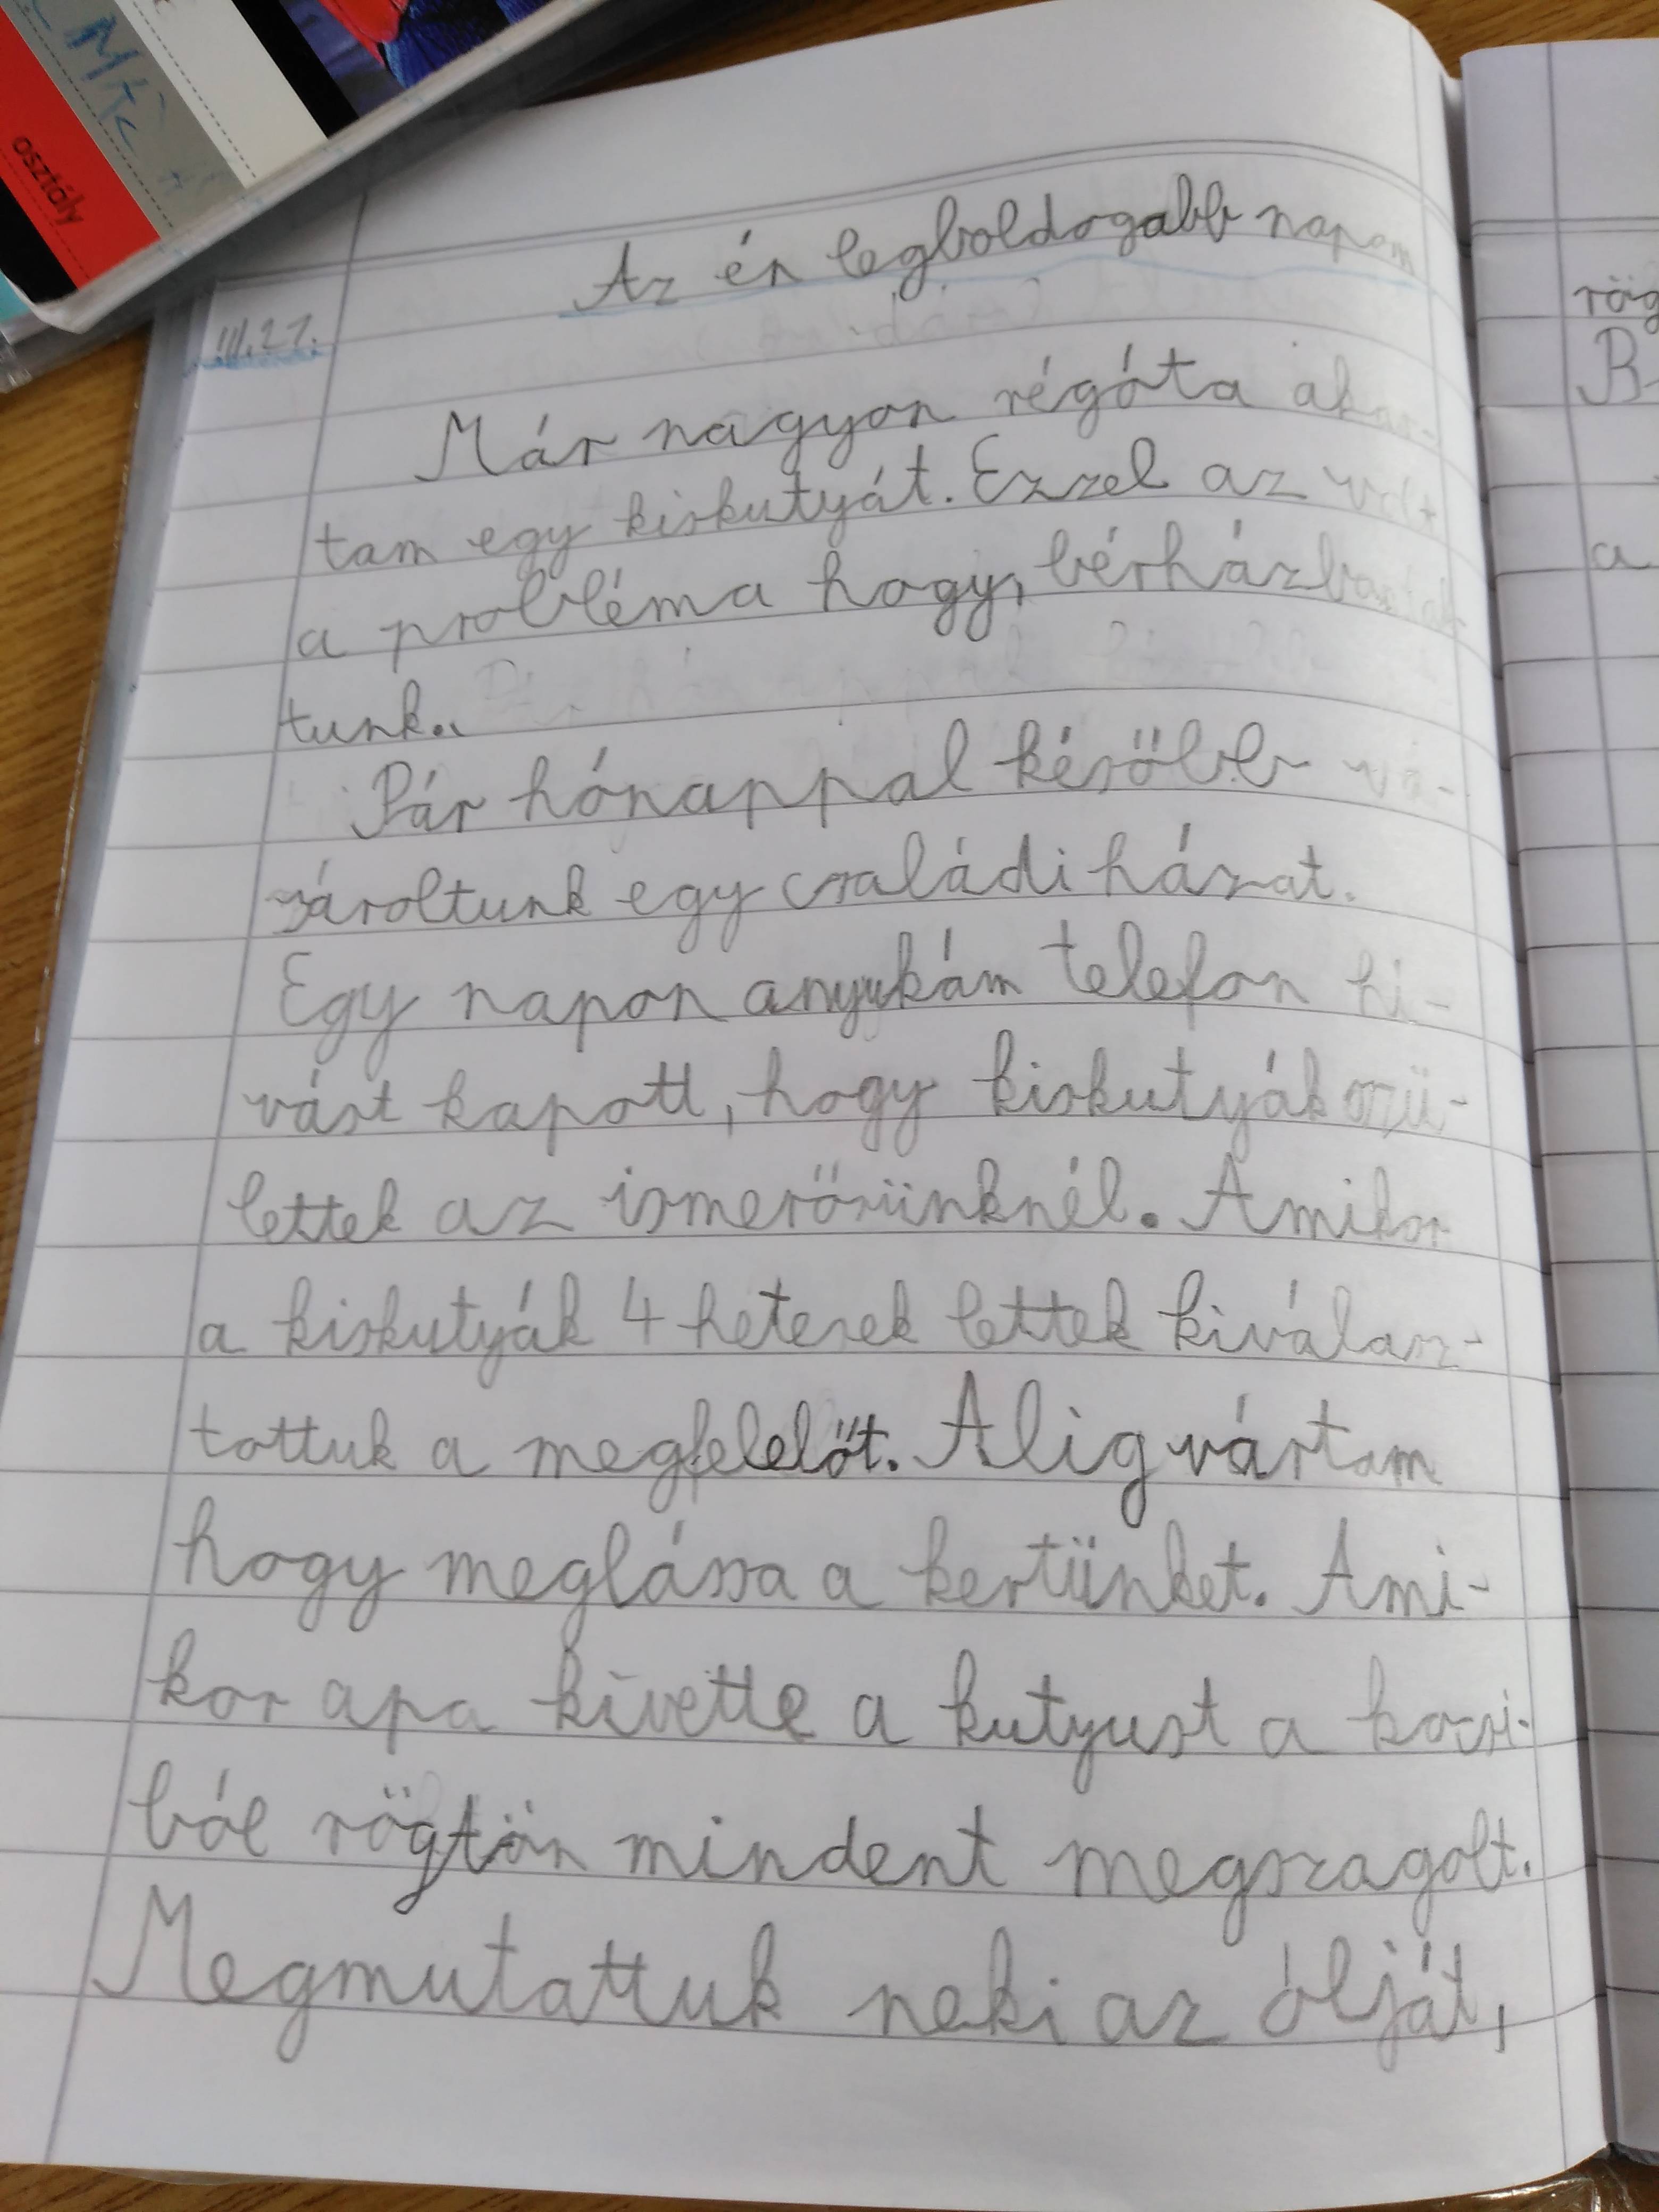 osztály
Az én legboldogabb napom
III.21.
Már nagyon régóta akar-
tam egy kiskutyát. Ezzel az volt
a probléma hogy, bérházban lak-
tunk.
Pár hónappal késöbb vá-
sároltunk egy családi házat.
Egy napon anyukám telefon hi-
vást kapott, hogy kiskutyák szü-
lettek az ismerősünknél. Amikor
a kiskutyák 4 hetesek lettek kiválasz-
tottuk a megfelelőt. Alig vártam
hogy meglássa a kertünket. Ami-
kor apa kivette a kutyust a kocsi-
ból rögtön mindent megszagolt.
Megmutattuk neki az ólját,
rög
B
a